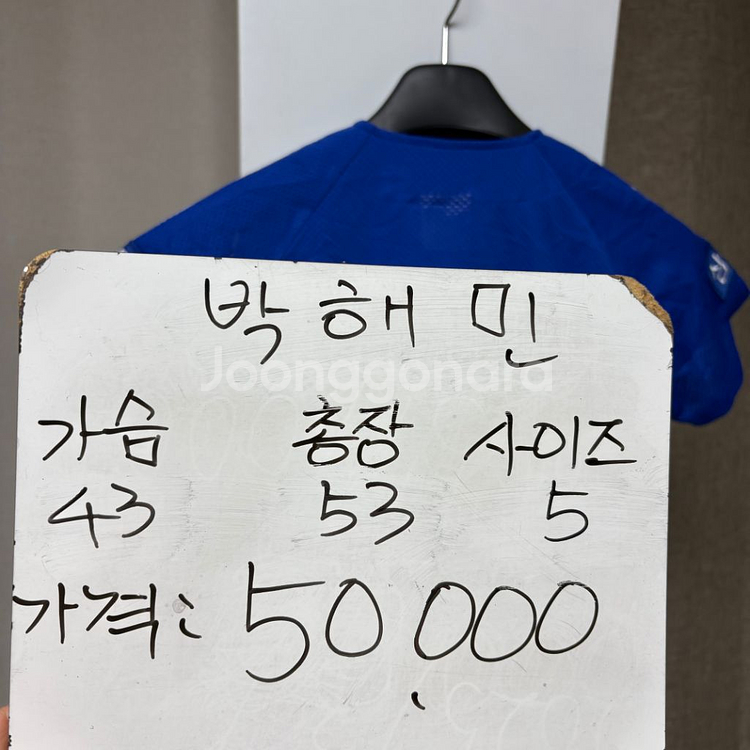 박해민
Joonggonara
가슴 총장 사이즈
43 53 5
가격: 50,000